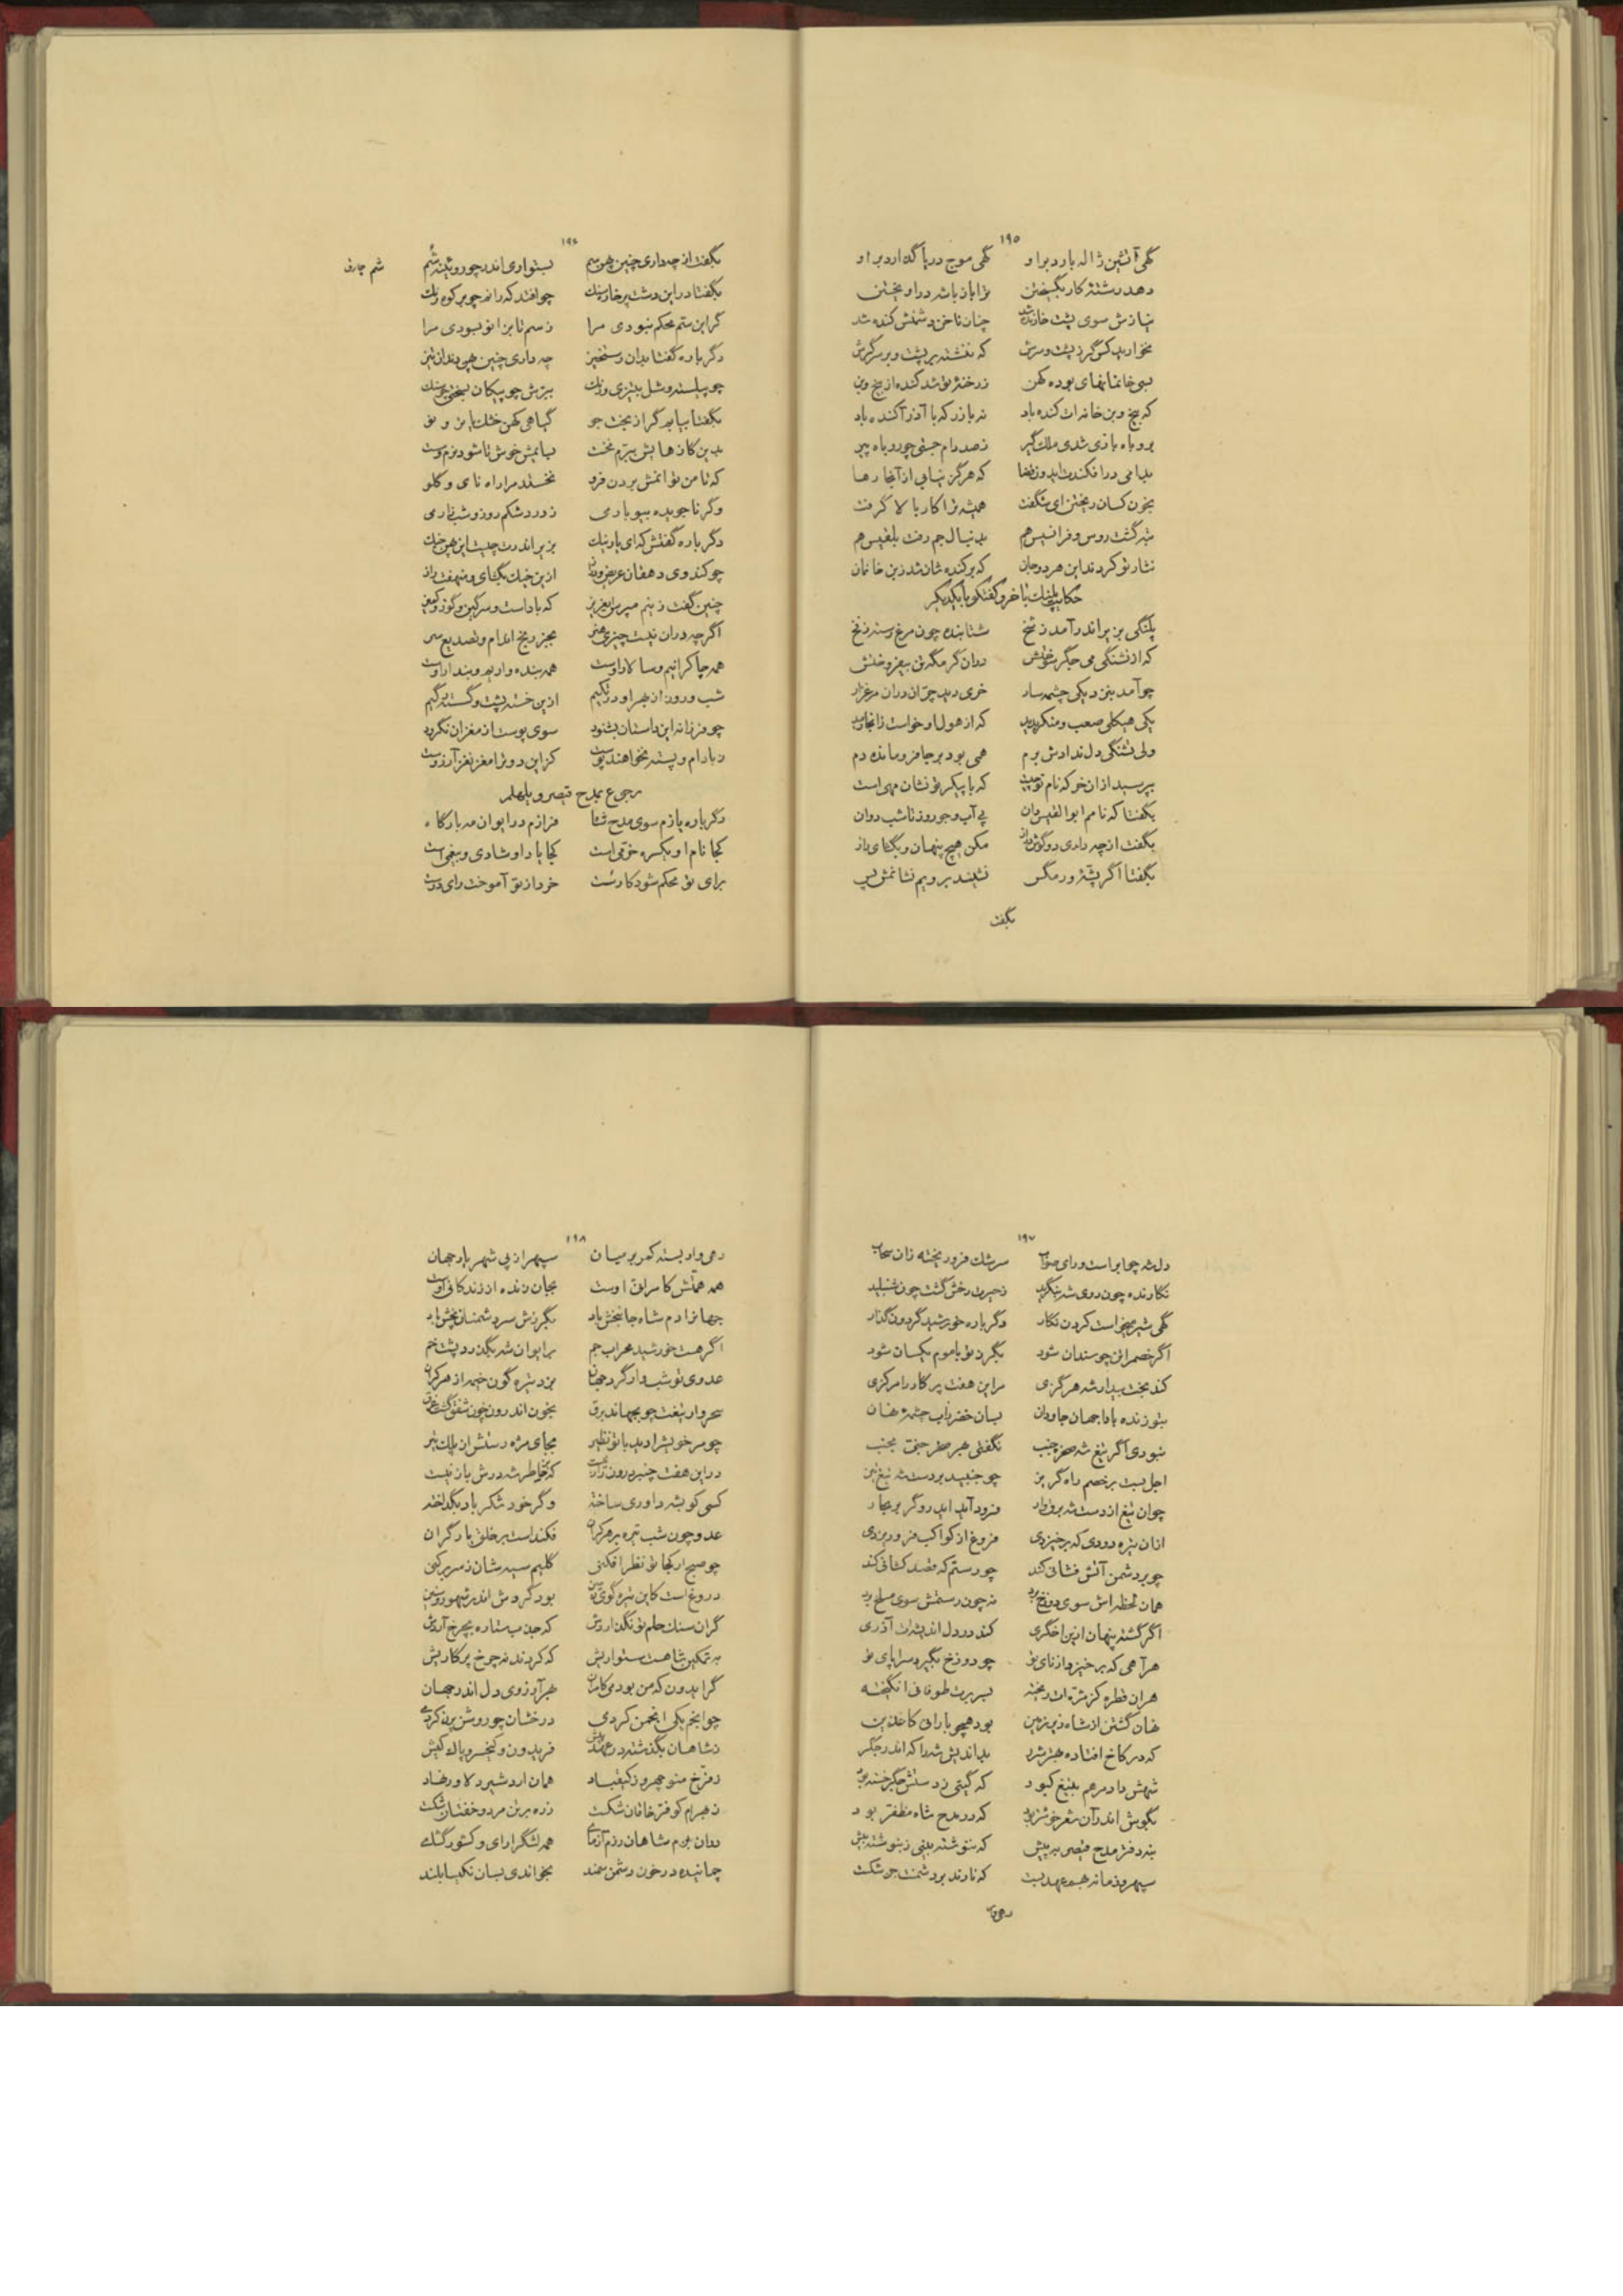 ۱۹۵
گهی آتشین ژاله بارد براو گهی موج دریا گذارد براو
دهد رشتهٔ کار بگسیختن ترا باز باشد در آویختن
نیازش سوی پشت خارنده شد چنان ناخن دشمنش کنده شد
بخوارید کس گر ز پشت و سرش که ننشسته بر پشت و بر سر گرش
بسی خانمانهای بوده کهن ز رخنهٔ تو شد کنده از بیخ و بن
که بیخ و بن خانه‌ات کنده باد نه بازر که با آذر آکنده باد
بروباه بازی شدی ملک گیر ز صد دام جستی چو روباه پیر
بدامی درافکندت ایدون قضا که هرگز نیابی از آنجا رها
بخون کسان ریختن ای شگفت همیشه ترا کار بالا گرفت
تبه گشت روس و فرانسیس هم بدنبال جم رفت بلقیس هم
نثار تو کردند این هر دو جان که برکنده شان شد زبن خانمان
حکایت پلنک با خر و گفتگو با یکدیگر
پلنگی بزیر اندر آمد ز شخ شتابنده چون مرغ رسته ز فخ
که از تشنگی می جگر سوختش روان گرمگه تن بیفروختش
چو آمد بنزدیکی چشمه سار خری دید چران دران مرغزار
یکی هیکلی صعب و منکر بدید که از هول او خواست زانجا رمید
ولی تشنگی دل ندادش برم همی بود بر جا فرومانده دم
بپرسید ازان خر که نام تو چیست که با پیکر تو نشان مهی است
بگفتا که نامم ابوالقیس دان پی آب و جو روز تا شب دوان
بگفت از چه داری دو گوش دراز مکن هیچ پنهان و بگشای راز
بگفتا اگر پشه ور مگس نشیند برویم نشانمش پس
بگفت
۱۹۶
بگفت از چه داری چنین پهن سم بستواری اندر چو روئینه شم
شم چارق
بگفتا در این دشت پر خار و سنك چو افتد که رانم چو بر کوه رنك
گر این ستم محکم نبودی مرا ز سم تا بزانو نبودی مرا
دگر باره گفتا بدان رستخیز چه داری چنین هی دندان تیز
چو پیلسته و شل بتیزی و رنك ببرش چو پیکان بسختی چو سنك
بگفتا بیابم گر از بخت جو گیاهی کهن خشك یا تر و نو
بدین کازهایش ببرم نخست بیابمش خوش تا شود نرم و سست
که تا من توانمش بردن فرو نخستد مرا راه نای و گلو
وگر ناجویده بیوبارمی ز درد شکم روز و شب زارمی
دگر باره گفتش که ای یار نیك بزیر اندرت چیست این هی خیك
چو کندوی دهقان عریض و دراز ازین خیك بگشای و بنهفت راز
چنین گفت زینم مپرس ای عزیز که باد است و سرگین و گوز و کمیز
اگرچه دران نیست چیزی هنر بجز رنج اندام و تصدیع سر
همه چاکرانیم و سالار اوست همه بنده واریم و بندار اوست
شب و روز از بهر او در تکیم ازین خسته پشت و گسسته رگیم
چو فرزانه این داستان بشنود سوی پوست از مغز ان نگرود
ز بادام و پسته نخواهند پوست کز این دو ترا مغز نغز آرزوست
رجوع بمدح قیصر و یلهلم
دگر باره یازم سوی مدح شاه فرازم در ایوان مه بارگاه
کجا نام او یکسره خرمی است کجا یاد او شادی و بیغمی است
برای تو محکم شود کار سست خرد از تو آموخت رای درست
۱۹۷
دل شه چو ابر است و رای صواب سرشك فرو ریخته زان سحاب
نگارنده چون روی شه بنگرید ز حیرت رخش گشت چون شنبلید
گهی شیر میخواست کردن نگار دگر باره خورشید گردون گذار
اگر خصم را تن چو سندان شود بگرد تو با موم یکسان شود
کند بخت بیدار شه هر گزی مر این هفت پرگار را مرکزی
بتو زنده بادا جهان جاودان بسان خضر زاب چشمه نهان
نبودی اگر تیغ شه صخره جنب نگفتی هر صخر جنت بجنب
اجل بست بر خصم راه گریز چو جنبید بر دست شه تیغ تیز
چو ان تیغ از دست شه برق وار فرود آید اید روگر بر بخار
ازان تیره دودی که برخیزدی فروغ از کواکب فروریزدی
چو بر دشمن آتش فشانی کند چو رستم که قصد کشانی کند
همان لحظه‌اش سوی دوزخ برد نه چون رستمش سوی مسلخ برد
اگر گشته پنهان ازین اخگری کند در دل اندیشه‌ات آذری
هر آهی که برخیزد از نای تو چو دوزخ بگیرد سراپای تو
هر ان قطره کز مژه‌ات ریخته بسر برت طوفانی انگیخته
نهان گشتن از شاه زیر زمین بود همچو بارانی کاغذین
که در کاخ افتاده هنر شرر بداندیش شه را که اندر جگر
شهش داد مرهم بتیغ کبود که گیتی ز دستش جگر خسته بود
بگوش اندر آن شعر خوشتر بود که در مدح شاه مظفر بود
بنه دفتر مدح قیصر به پیش که ننوشته بینی ز بنوشته بیش
سپهر و زمانه بهم عهد بست که نارند بر دشمنت جز شکست
رهی وار
۱۹۸
رهی وار بسته کمر بر میان سپهر از پی شهریار جهان
همه همتش کامرانی اوست بجان زنده از زندگانی اوست
جهانرا دم شاه جانبخش باد بگرزش سر دشمنان پخش باد
اگر هست خورشید محراب جم بر ایوان شه بگذرد پشت خم
عدوی تو شب وار گرد جهان بزد تیره گون خیمه از هر کران
سحر وار تیغت چو بجهاند برق بخون اندرون چون شفق گشت غرق
چو مر خویش را دید با تو نظیر بجای مژه رستش از پلك تیر
در این هفت چنبر درون راز نیست که بر خاطر شه درش باز نیست
کسی کو بشه داوری ساخته وگر خود شکر باد بگداخته
عدو چون شب تیره بر هر کران فکنداست بر خلق بار گران
چو صبح ار کجا تو نظر افکنی گلیم سیه شان ز سر برکنی
دروغ است کاین تیره گوی زمین بود گردش اندر شهور و سنین
گران سنك حلم تو نگذاردش که جذب ستاره بچرخ آردش
به تمکین شاهست ستواریش که کردند نه چرخ پرگاریش
گر ایدون که من بودمی کامران بهر آرزوی دل اندر جهان
چو انجم یکی انجمن کردمی درخشان چو روشن پرن کردمی
ز شاهان بگذشته در عهد خویش فریدون و کیخسرو پاك کیش
ز فرخ منوچهر و ز کیقباد همان اردشیر دلاور نهاد
ز بهرام کو فتر خاقان شکست زده برتن مرد و خفتان شکست
روان بدم شاهان رزم آزمای همه لشگر ارای و کشور گشای
چمانیده در خون دشمن سمند بخواندی بسان نکیسا بلند